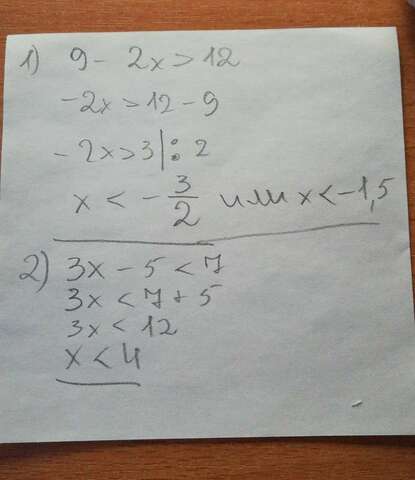 1) 9 - 2x > 12
-2x > 12 - 9
- 2x > 3 | : 2
x < - 3/2 или x < -1,5
2) 3x - 5 < 7
3x < 7 + 5
3x < 12
x < 4